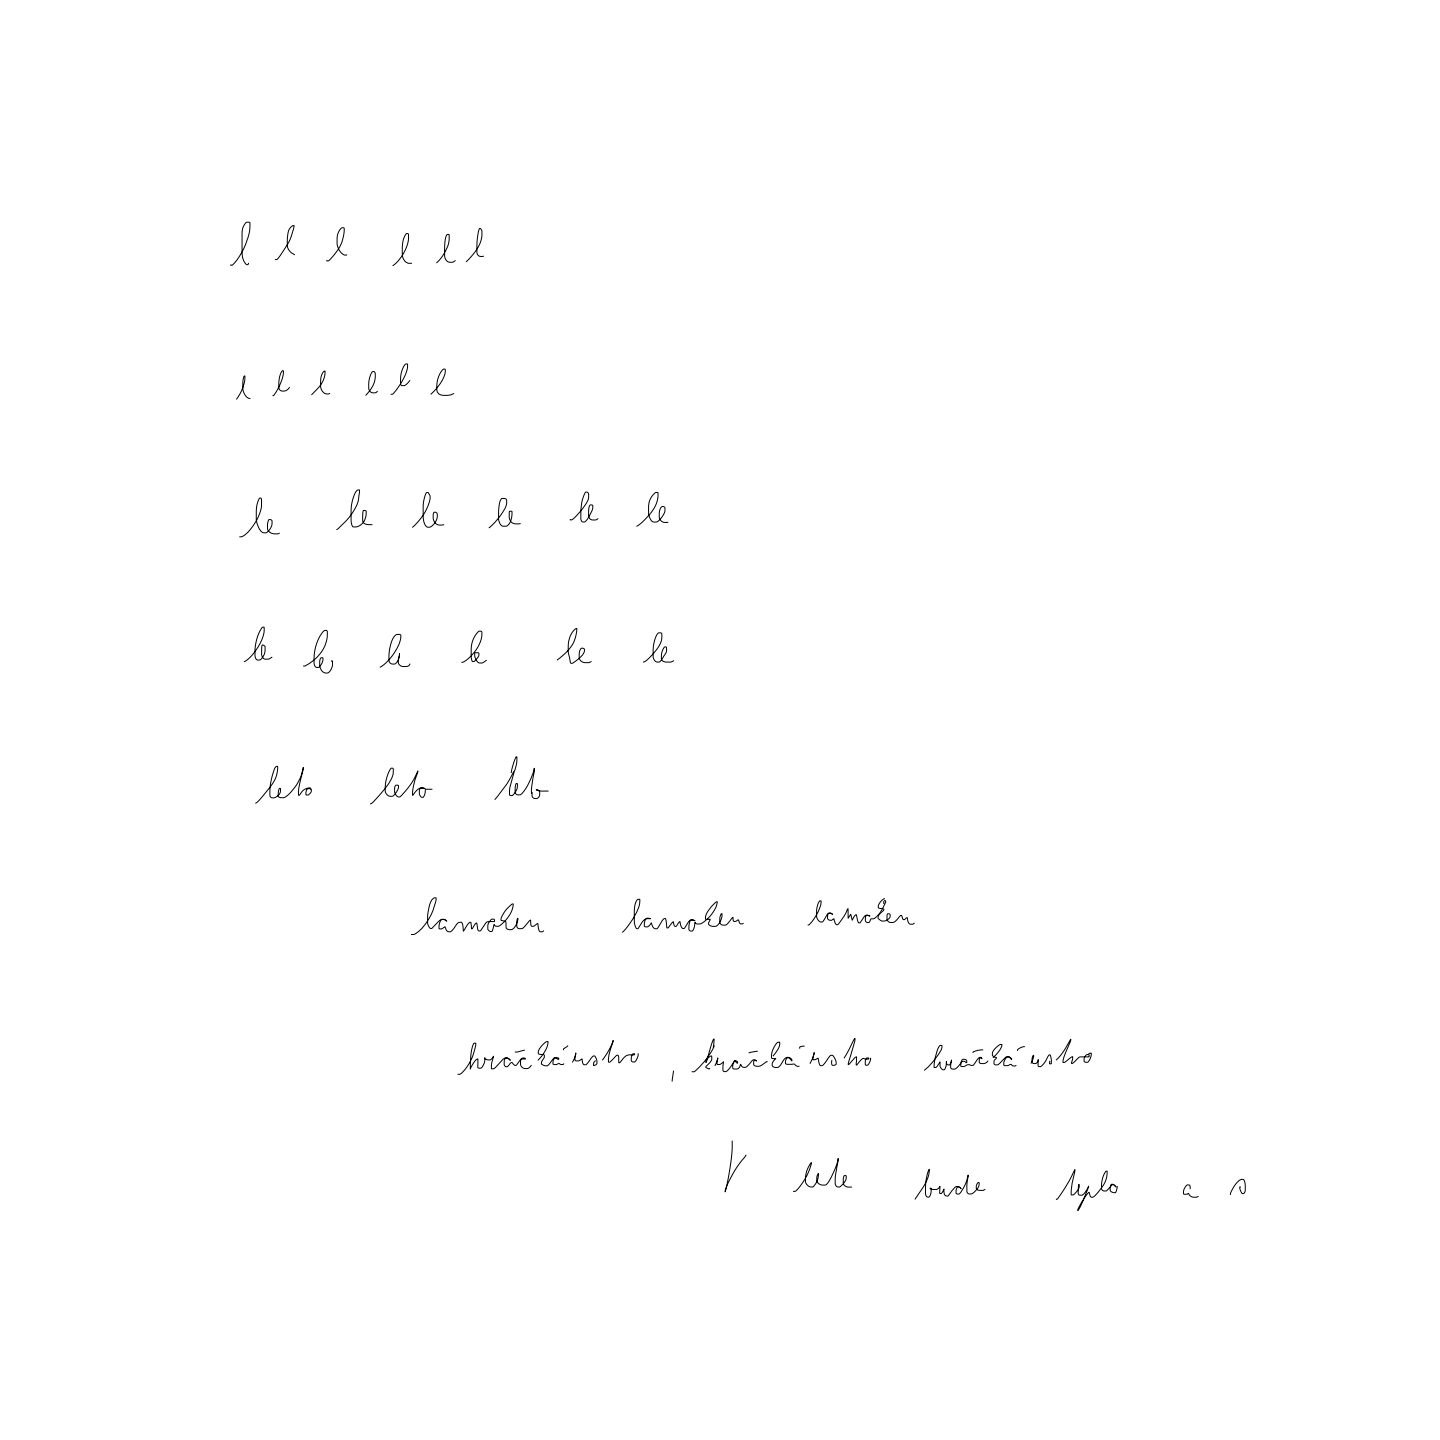 l l l l l l
l l l l l l
le le le le le le
le le le le le le
leto leto leto
lamoken lamoken lamoken
hračkárstvo , hračkárstvo hračkárstvo
V lete bude teplo a s